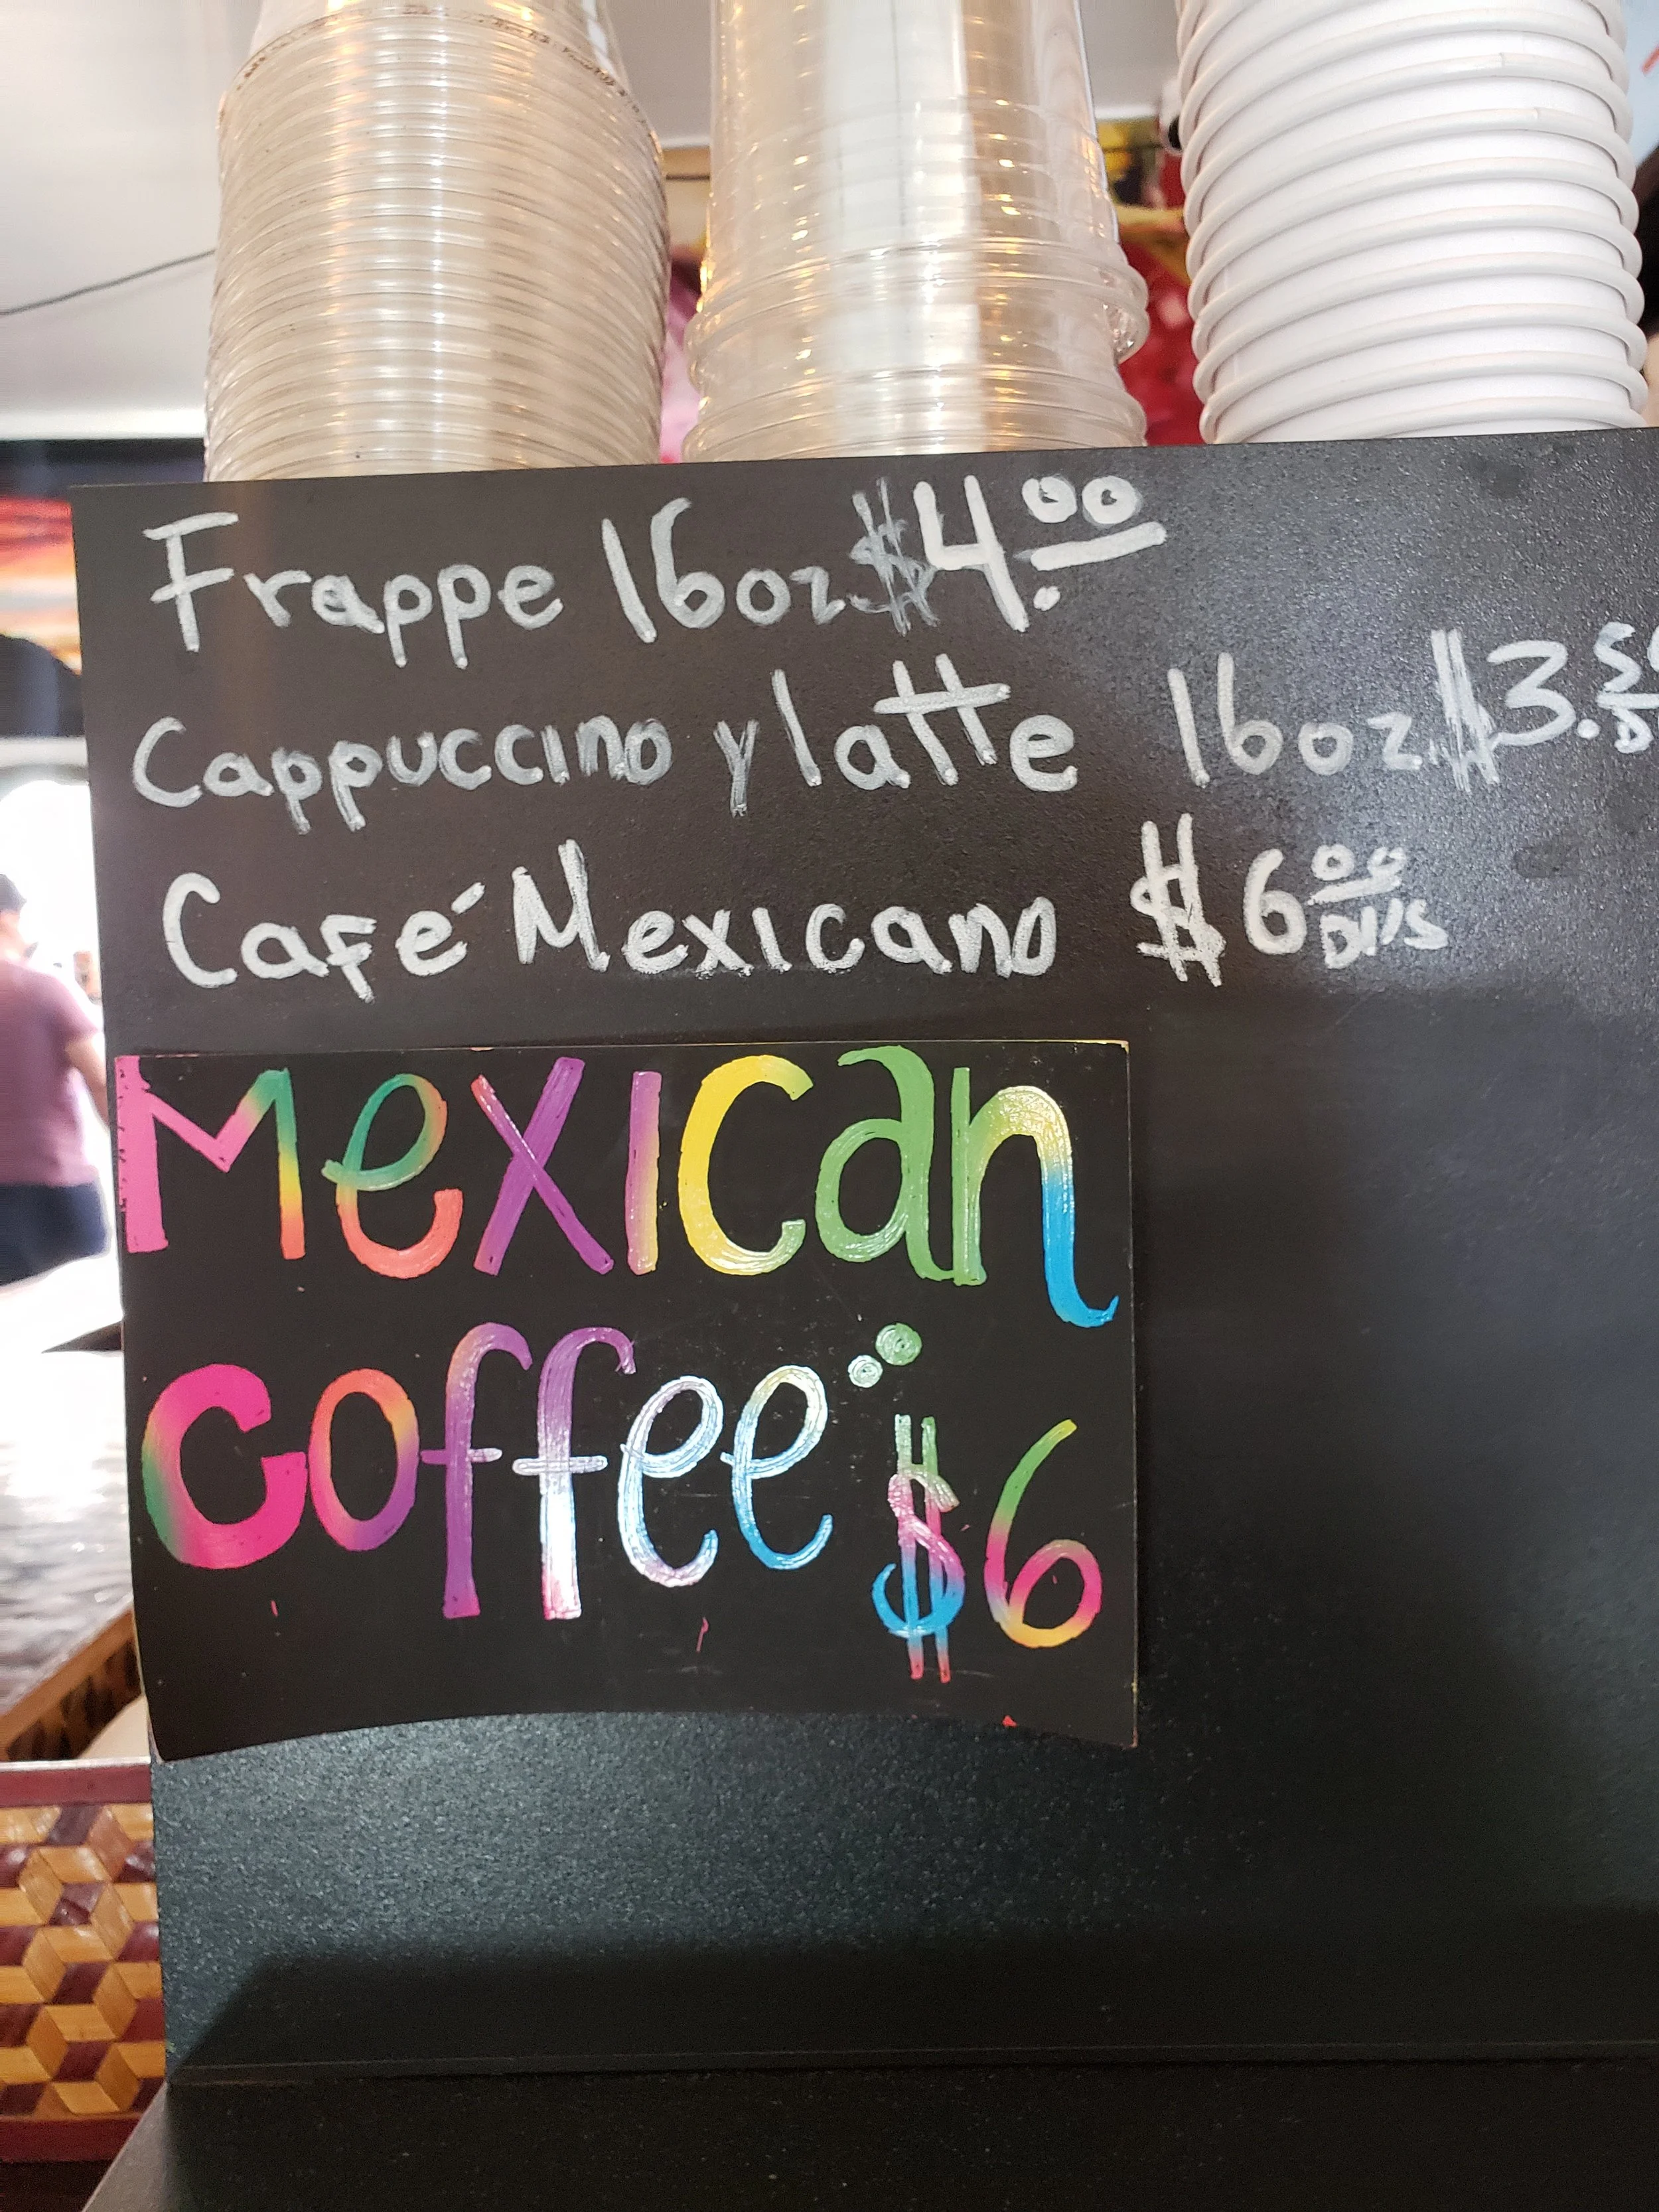 Frappe 16oz $4.00
Cappuccino y latte 16oz. $3.50
Café Mexicano $6.00 Dlls
Mexican
Coffee: $6